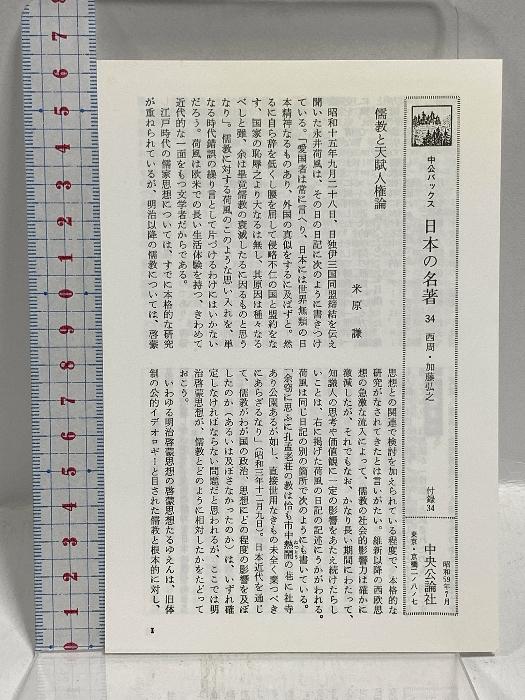 中公バックス 日本の名著 34 西周・加藤弘之
付録34
昭和59年7月
中央公論社
東京・京橋二ノ八ノ七
儒教と天賦人権論
米原 謙
昭和十五年九月二十八日、日独伊三国同盟締結を伝え
聞いた永井荷風は、その日の日記に次のように書きつけ
ている。「愛国者は常に言へり、日本には世界無類の日
本精神なるものあり、外国の真似をするに及ばずと。然
るに自ら辞を低くし腰を屈して侵略不仁の国と盟約をな
す、国家の恥辱之より大なるは無し、其原因は種々なる
べしと雖、余は畢竟儒教の衰滅したるに因るものと思う
なり」。儒教に対する荷風のこのような思い入れを、単
なる時代錯誤の繰り言として片づけるわけにはいかない
だろう。荷風は欧米での長い生活体験を持つ、きわめて
近代的な一面をもつ文学者だからである。
江戸時代の儒家思想については、すでに本格的な研究
が重ねられているが、明治以降の儒教については、啓蒙
思想との関連で検討を加えられている程度で、本格的な
研究がなされてきたとは言いがたい。維新以降の西欧思
想の急激な流入によって、儒教の社会的影響力は確かに
激減したが、それでもなお、かなり長い期間にわたって、
知識人の思考や価値観に一定の影響をあたえ続けたらし
いことは、右に掲げた荷風の日記の記述にうかがわれる。
荷風は同じ日記の別の箇所で次のようにも書いている。
「余窃に思ふに孔孟老荘の教は恰も市中熱閙の巷に社寺
あり公園あるが如し、直接世用なきもの未全く棄つべき
にあらざるなり」(昭和三年十二月九日)。日本近代を通じ
て、儒教がわが国の政治、思想にどの程度の影響を及ぼ
したのか(あるいは及ぼさなかったのか)は、いずれ確
定しなければならない問題だと思われるが、ここでは明
治啓蒙思想が、儒教とどのように相対したかをたどって
おこう。
いわゆる明治啓蒙思想の啓蒙思想たるゆえんは、旧体
制の公的イデオロギーと目された儒教と根本的に対し、
1
0 1 2 3 4 5 6 7 8 9 0 1 2 3 4 5 6 7